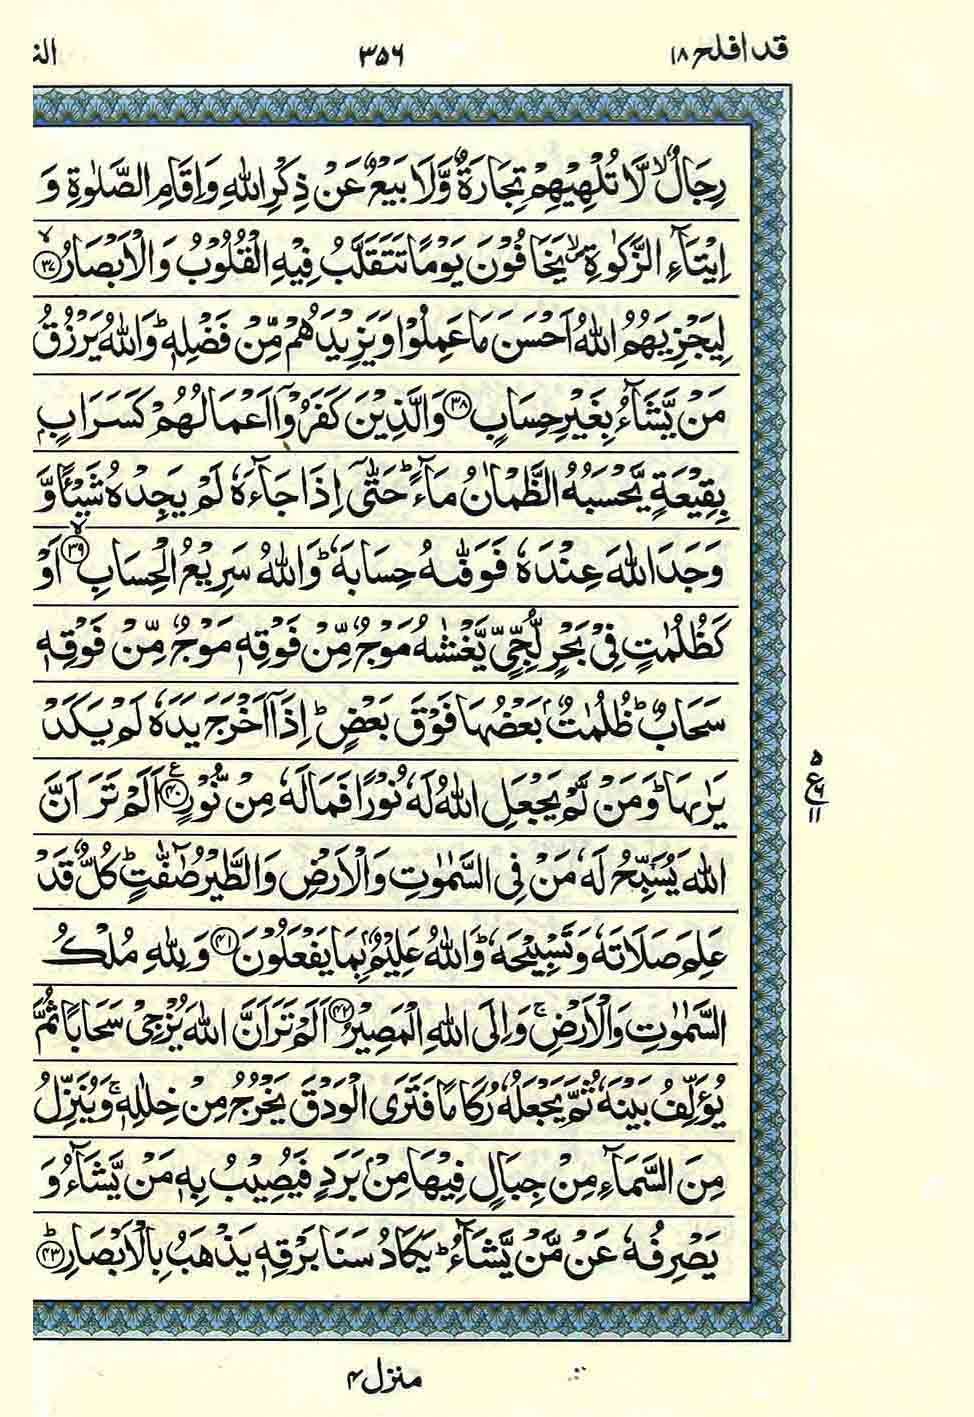 قد افلح ١٨
٣٥٦
رِجَالٌ ۙ لَّا تُلْهِيْهِمْ تِجَارَةٌ وَّلَا بَيْعٌ عَنْ ذِكْرِ اللّٰهِ وَاِقَامِ الصَّلٰوةِ وَ
اِيْتَآءِ الزَّكٰوةِ ۪ۙ يَخَافُوْنَ يَوْمًا تَتَقَلَّبُ فِيْهِ الْقُلُوْبُ وَالْاَبْصَارُ ۙ﴿٣٧﴾
لِيَجْزِيَهُمُ اللّٰهُ اَحْسَنَ مَا عَمِلُوْا وَيَزِيْدَهُمْ مِّنْ فَضْلِهٖ ؕ وَاللّٰهُ يَرْزُقُ
مَنْ يَّشَآءُ بِغَيْرِ حِسَابٍ ﴿٣٨﴾ وَالَّذِيْنَ كَفَرُوْٓا اَعْمَالُهُمْ كَسَرَابٍۭ
بِقِيْعَةٍ يَّحْسَبُهُ الظَّمْاٰنُ مَآءً ؕ حَتّٰٓى اِذَا جَآءَهٗ لَمْ يَجِدْهُ شَيْـًٔا وَّ
وَجَدَ اللّٰهَ عِنْدَهٗ فَوَفّٰىهُ حِسَابَهٗ ؕ وَاللّٰهُ سَرِيْعُ الْحِسَابِ ۙ﴿٣٩﴾ اَوْ
كَظُلُمٰتٍ فِيْ بَحْرٍ لُّجِّيٍّ يَّغْشٰىهُ مَوْجٌ مِّنْ فَوْقِهٖ مَوْجٌ مِّنْ فَوْقِهٖ
سَحَابٌ ؕ ظُلُمٰتٌۢ بَعْضُهَا فَوْقَ بَعْضٍ ؕ اِذَآ اَخْرَجَ يَدَهٗ لَمْ يَكَدْ
يَرٰىهَا ؕ وَمَنْ لَّمْ يَجْعَلِ اللّٰهُ لَهٗ نُوْرًا فَمَا لَهٗ مِنْ نُّوْرٍ ﴿٤٠﴾ۧ اَلَمْ تَرَ اَنَّ
اللّٰهَ يُسَبِّحُ لَهٗ مَنْ فِى السَّمٰوٰتِ وَالْاَرْضِ وَالطَّيْرُ صٰٓفّٰتٍ ؕ كُلٌّ قَدْ
عَلِمَ صَلَاتَهٗ وَتَسْبِيْحَهٗ ؕ وَاللّٰهُ عَلِيْمٌۢ بِمَا يَفْعَلُوْنَ ﴿٤١﴾ وَلِلّٰهِ مُلْكُ
السَّمٰوٰتِ وَالْاَرْضِ ۚ وَاِلَى اللّٰهِ الْمَصِيْرُ ﴿٤٢﴾ اَلَمْ تَرَ اَنَّ اللّٰهَ يُزْجِيْ سَحَابًا ثُمَّ
يُؤَلِّفُ بَيْنَهٗ ثُمَّ يَجْعَلُهٗ رُكَامًا فَتَرَى الْوَدْقَ يَخْرُجُ مِنْ خِلٰلِهٖ ۚ وَيُنَزِّلُ
مِنَ السَّمَآءِ مِنْ جِبَالٍ فِيْهَا مِنْۢ بَرَدٍ فَيُصِيْبُ بِهٖ مَنْ يَّشَآءُ وَ
يَصْرِفُهٗ عَنْ مَّنْ يَّشَآءُ ؕ يَكَادُ سَنَا بَرْقِهٖ يَذْهَبُ بِالْاَبْصَارِ ؕ﴿٤٣﴾
٥
ع
٦
١١
منزل ٤